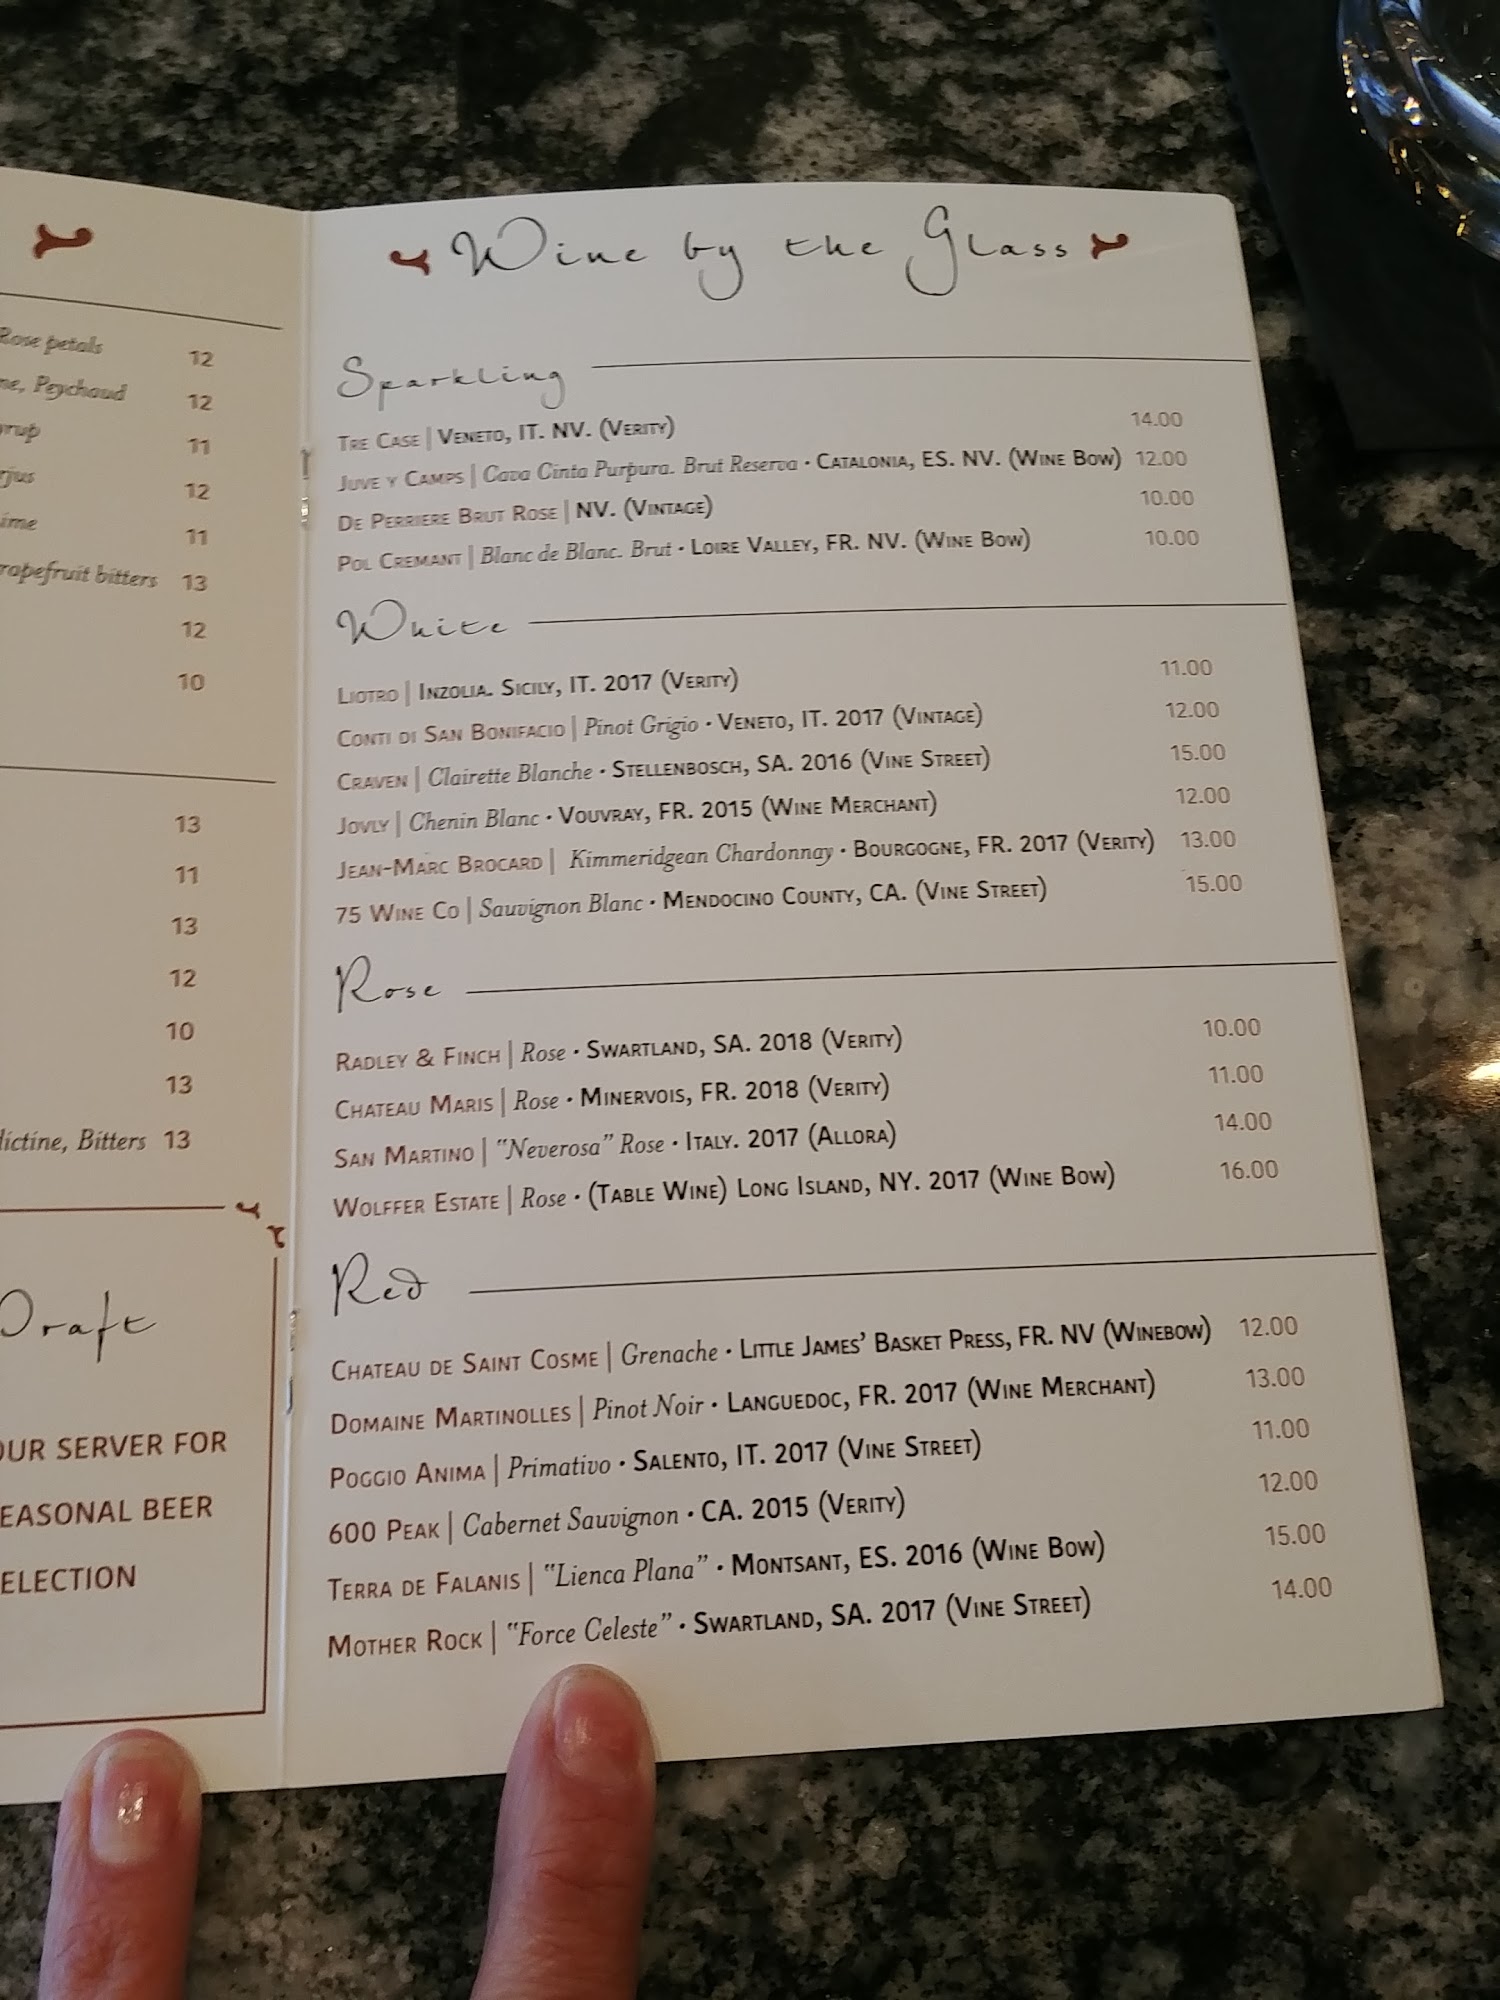 Rose petals 12
Peychaud 12
11
12
11
grapefruit bitters 13
12
10
13
11
13
12
10
13
Bitters 13
Draft
SERVER FOR
BEER
Wine by the Glass
Sparkling
TRE CASE | VENETO, IT. NV. (VERITY) 14.00
JUVE Y CAMPS | Cava Cinta Purpura. Brut Reserva • CATALONIA, ES. NV. (WINE BOW) 12.00
DE PERRIERE BRUT ROSE | NV. (VINTAGE) 10.00
POL CREMANT | Blanc de Blanc. Brut • LOIRE VALLEY, FR. NV. (WINE BOW) 10.00
White
LIOTRO | INZOLIA. SICILY, IT. 2017 (VERITY) 11.00
CONTI DI SAN BONIFACIO | Pinot Grigio • VENETO, IT. 2017 (VINTAGE) 12.00
CRAVEN | Clairette Blanche • STELLENBOSCH, SA. 2016 (VINE STREET) 15.00
JOVLY | Chenin Blanc • VOUVRAY, FR. 2015 (WINE MERCHANT) 12.00
JEAN-MARC BROCARD | Kimmeridgean Chardonnay • BOURGOGNE, FR. 2017 (VERITY) 13.00
75 WINE CO | Sauvignon Blanc • MENDOCINO COUNTY, CA. (VINE STREET) 15.00
Rose
RADLEY & FINCH | Rose • SWARTLAND, SA. 2018 (VERITY) 10.00
CHATEAU MARIS | Rose • MINERVOIS, FR. 2018 (VERITY) 11.00
SAN MARTINO | "Neverosa" Rose • ITALY. 2017 (ALLORA) 14.00
WOLFFER ESTATE | Rose • (TABLE WINE) LONG ISLAND, NY. 2017 (WINE BOW) 16.00
Red
CHATEAU DE SAINT COSME | Grenache • LITTLE JAMES' BASKET PRESS, FR. NV (WINEBOW) 12.00
DOMAINE MARTINOLLES | Pinot Noir • LANGUEDOC, FR. 2017 (WINE MERCHANT) 13.00
POGGIO ANIMA | Primativo • SALENTO, IT. 2017 (VINE STREET) 11.00
600 PEAK | Cabernet Sauvignon • CA. 2015 (VERITY) 12.00
TERRA DE FALANIS | "Lienca Plana" • MONTSANT, ES. 2016 (WINE BOW) 15.00
MOTHER ROCK | "Force Celeste" • SWARTLAND, SA. 2017 (VINE STREET) 14.00